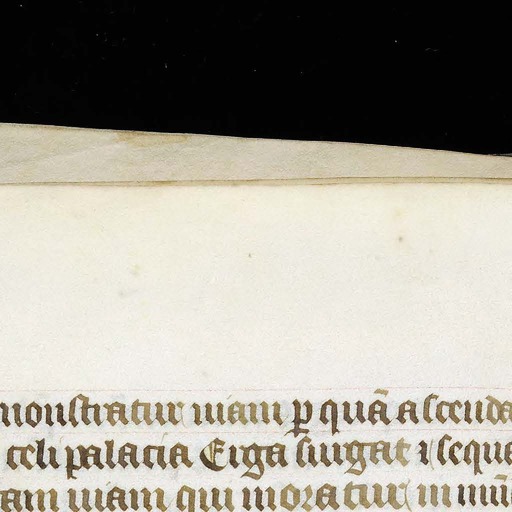 monstratur uiam p quā ascenda
celi palacia Erga surgat ⁊ seque
am uiam qui moratur in